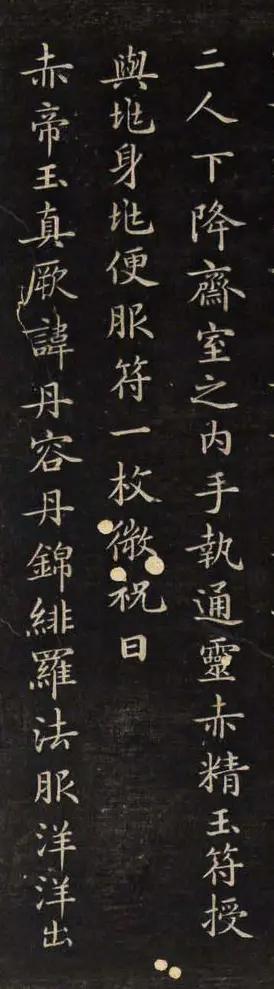 二人下降齋室之內手執通靈赤精玉符授
與地身地便服符一枚微祝曰
赤帝玉真厥諱丹容丹錦緋羅法服洋洋出